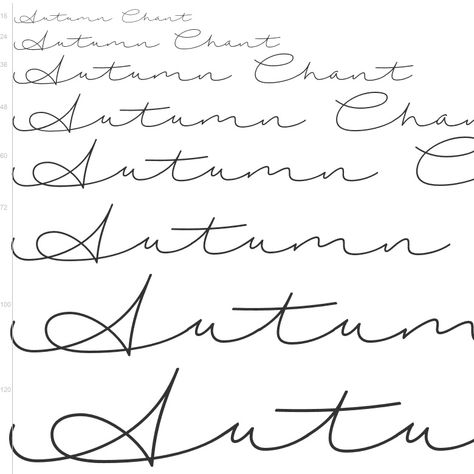 16 Autumn Chant
24 Autumn Chant
38 Autumn Chant
48 Autumn Chan
60 Autumn C
72 Autumn
100 Autum
120 Autu